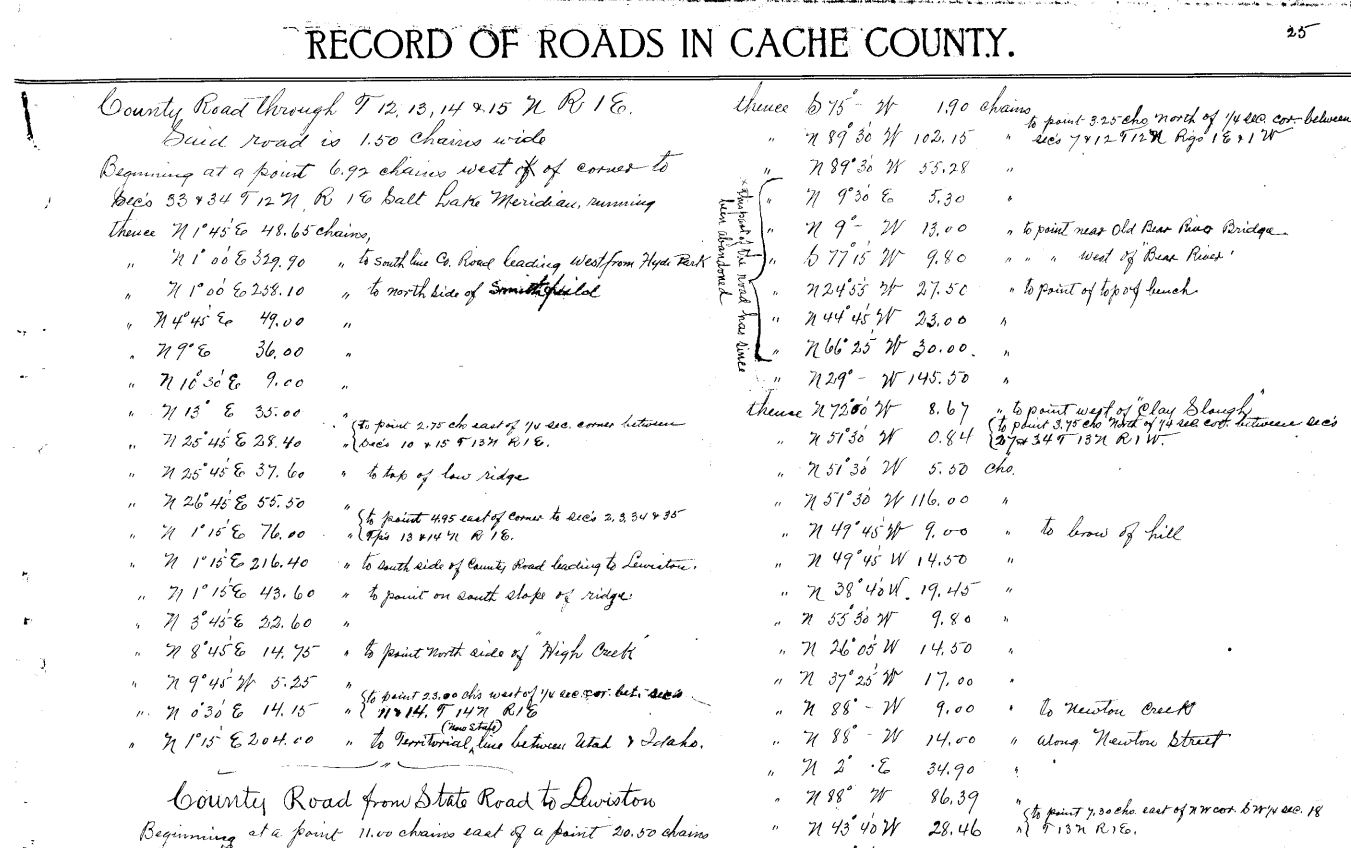 25
RECORD OF ROADS IN CACHE COUNTY.
County Road through T 12, 13, 14 & 15 N R 1 E.
Said road is 1.50 chains wide
Beginning at a point 6.92 chains west of corner to
Sec's 33 & 34 T 12 N, R 1 E Salt Lake Meridian, running
thence N 1° 45' E 48.65 chains,
" N 1° 00' E 329.90 " to south line Co. Road leading West from Hyde Park
" N 1° 00' E 258.10 " to north side of Smithfield
" N 4° 45' E 49.00 "
" N 9° E 36.00 "
" N 10° 30' E 9.00 "
" N 13° E 35.00 "
" N 25° 45' E 28.40 " { to point 2.75 chs east of 1/4 sec. corner between
Sec's 10 & 15 T 13 N R 1 E.
" N 25° 45' E 37.60 " to top of low ridge
" N 26° 45' E 55.50 "
" N 1° 15' E 76.00 " { to point 4.95 east of corner to sec's 2, 3, 34 & 35
Tp's 13 & 14 N R 1 E.
" N 1° 15' E 216.40 " to south side of County Road leading to Lewiston.
" N 1° 15' E 43.60 " to point on south slope of ridge
" N 3° 45' E 22.60 "
" N 8° 45' E 14.75 " to point North side of "High Creek"
" N 9° 45' W 5.25 "
" N 0° 30' E 14.15 " { to point 23.00 chs west of 1/4 sec. cor. bet. sec's
11 & 14, T 14 N R 1 E
(Now State)
" N 1° 15' E 204.00 " to Territorial ^ line between Utah & Idaho.
"
County Road from State Road to Lewiston
Beginning at a point 11.00 chains east of a point 20.50 chains
thence S 75° - W 1.90 chains
" N 89° 30' W 102.15 " to point 3.25 chs North of 1/4 sec. cor. between
sec's 7 & 12 T 12 N Rgs 1 E & 1 W
" N 89° 30' W 55.28 "
" N 9° 30' E 5.30 "
" N 9° - W 13.00 " to point near Old Bear River Bridge
" S 77° 15' W 9.80 " " " west of "Bear River"
" N 24° 55' W 27.50 " to point of top of bench
" N 44° 45' W 23.00 "
" N 66° 25' W 30.00 "
x this part of the road has since
been abandoned
" N 29° - W 145.50 "
thence N 72° 00' W 8.67 " to point west of "Clay Slough"
" N 51° 30' W 0.84 { to point 3.75 chs North of 1/4 sec. cor. between sec's
27 & 34 T 13 N R 1 W.
" N 51° 30' W 5.50 chs.
" N 51° 30' W 116.00 "
" N 49° 45' W 9.00 " to brow of hill
" N 49° 45' W 14.50 "
" N 38° 40' W 19.45 "
" N 55° 30' W 9.80 "
" N 26° 05' W 14.50 "
" N 37° 25' W 17.00 "
" N 88° - W 9.00 " to Newton Creek
" N 88° - W 14.00 " along Newton Street
" N 2° E 34.90 "
" N 88° W 86.39 "
" N 43° 40' W 28.46 " { to point 7.30 chs. east of NW cor. SW 1/4 sec. 18
T 13 N R 1 E.